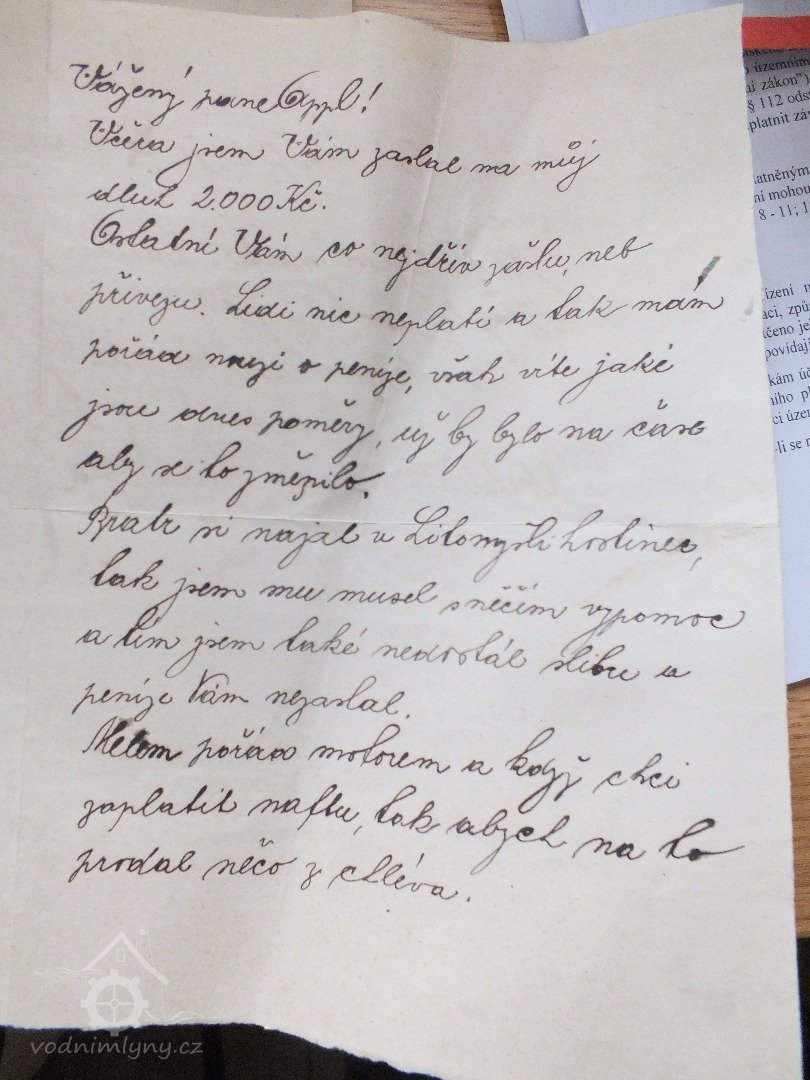 Vážený pane Appl!
Včera jsem Vám zaslal na můj
dluh 2.000 Kč.
Ostatní Vám co nejdřív zašlu, neb
přivezu. Lidi nic neplatí a tak mám
pořád nouzi o peníze, však víte jaké
jsou dnes poměry, už by bylo na čase
aby se to změnilo.
Bratr si najal v Litomyšli hostinec,
tak jsem mu musel s něčím vypomoc
a tím jsem také nedostál slibu a
peníze Vám nezaslal.
Melem pořád motorem a když chci
zaplatit naftu, tak abych na to
prodal něčo z chléva.
územním
ní zákon")
§ 112 odst
platnit záv
atněným
ní mohou
8 - 11; 1
ízení n
aci, způ
čeno je
povídají
kám úč
ního pl
ci územ
-li se n
vodnimlyny.cz